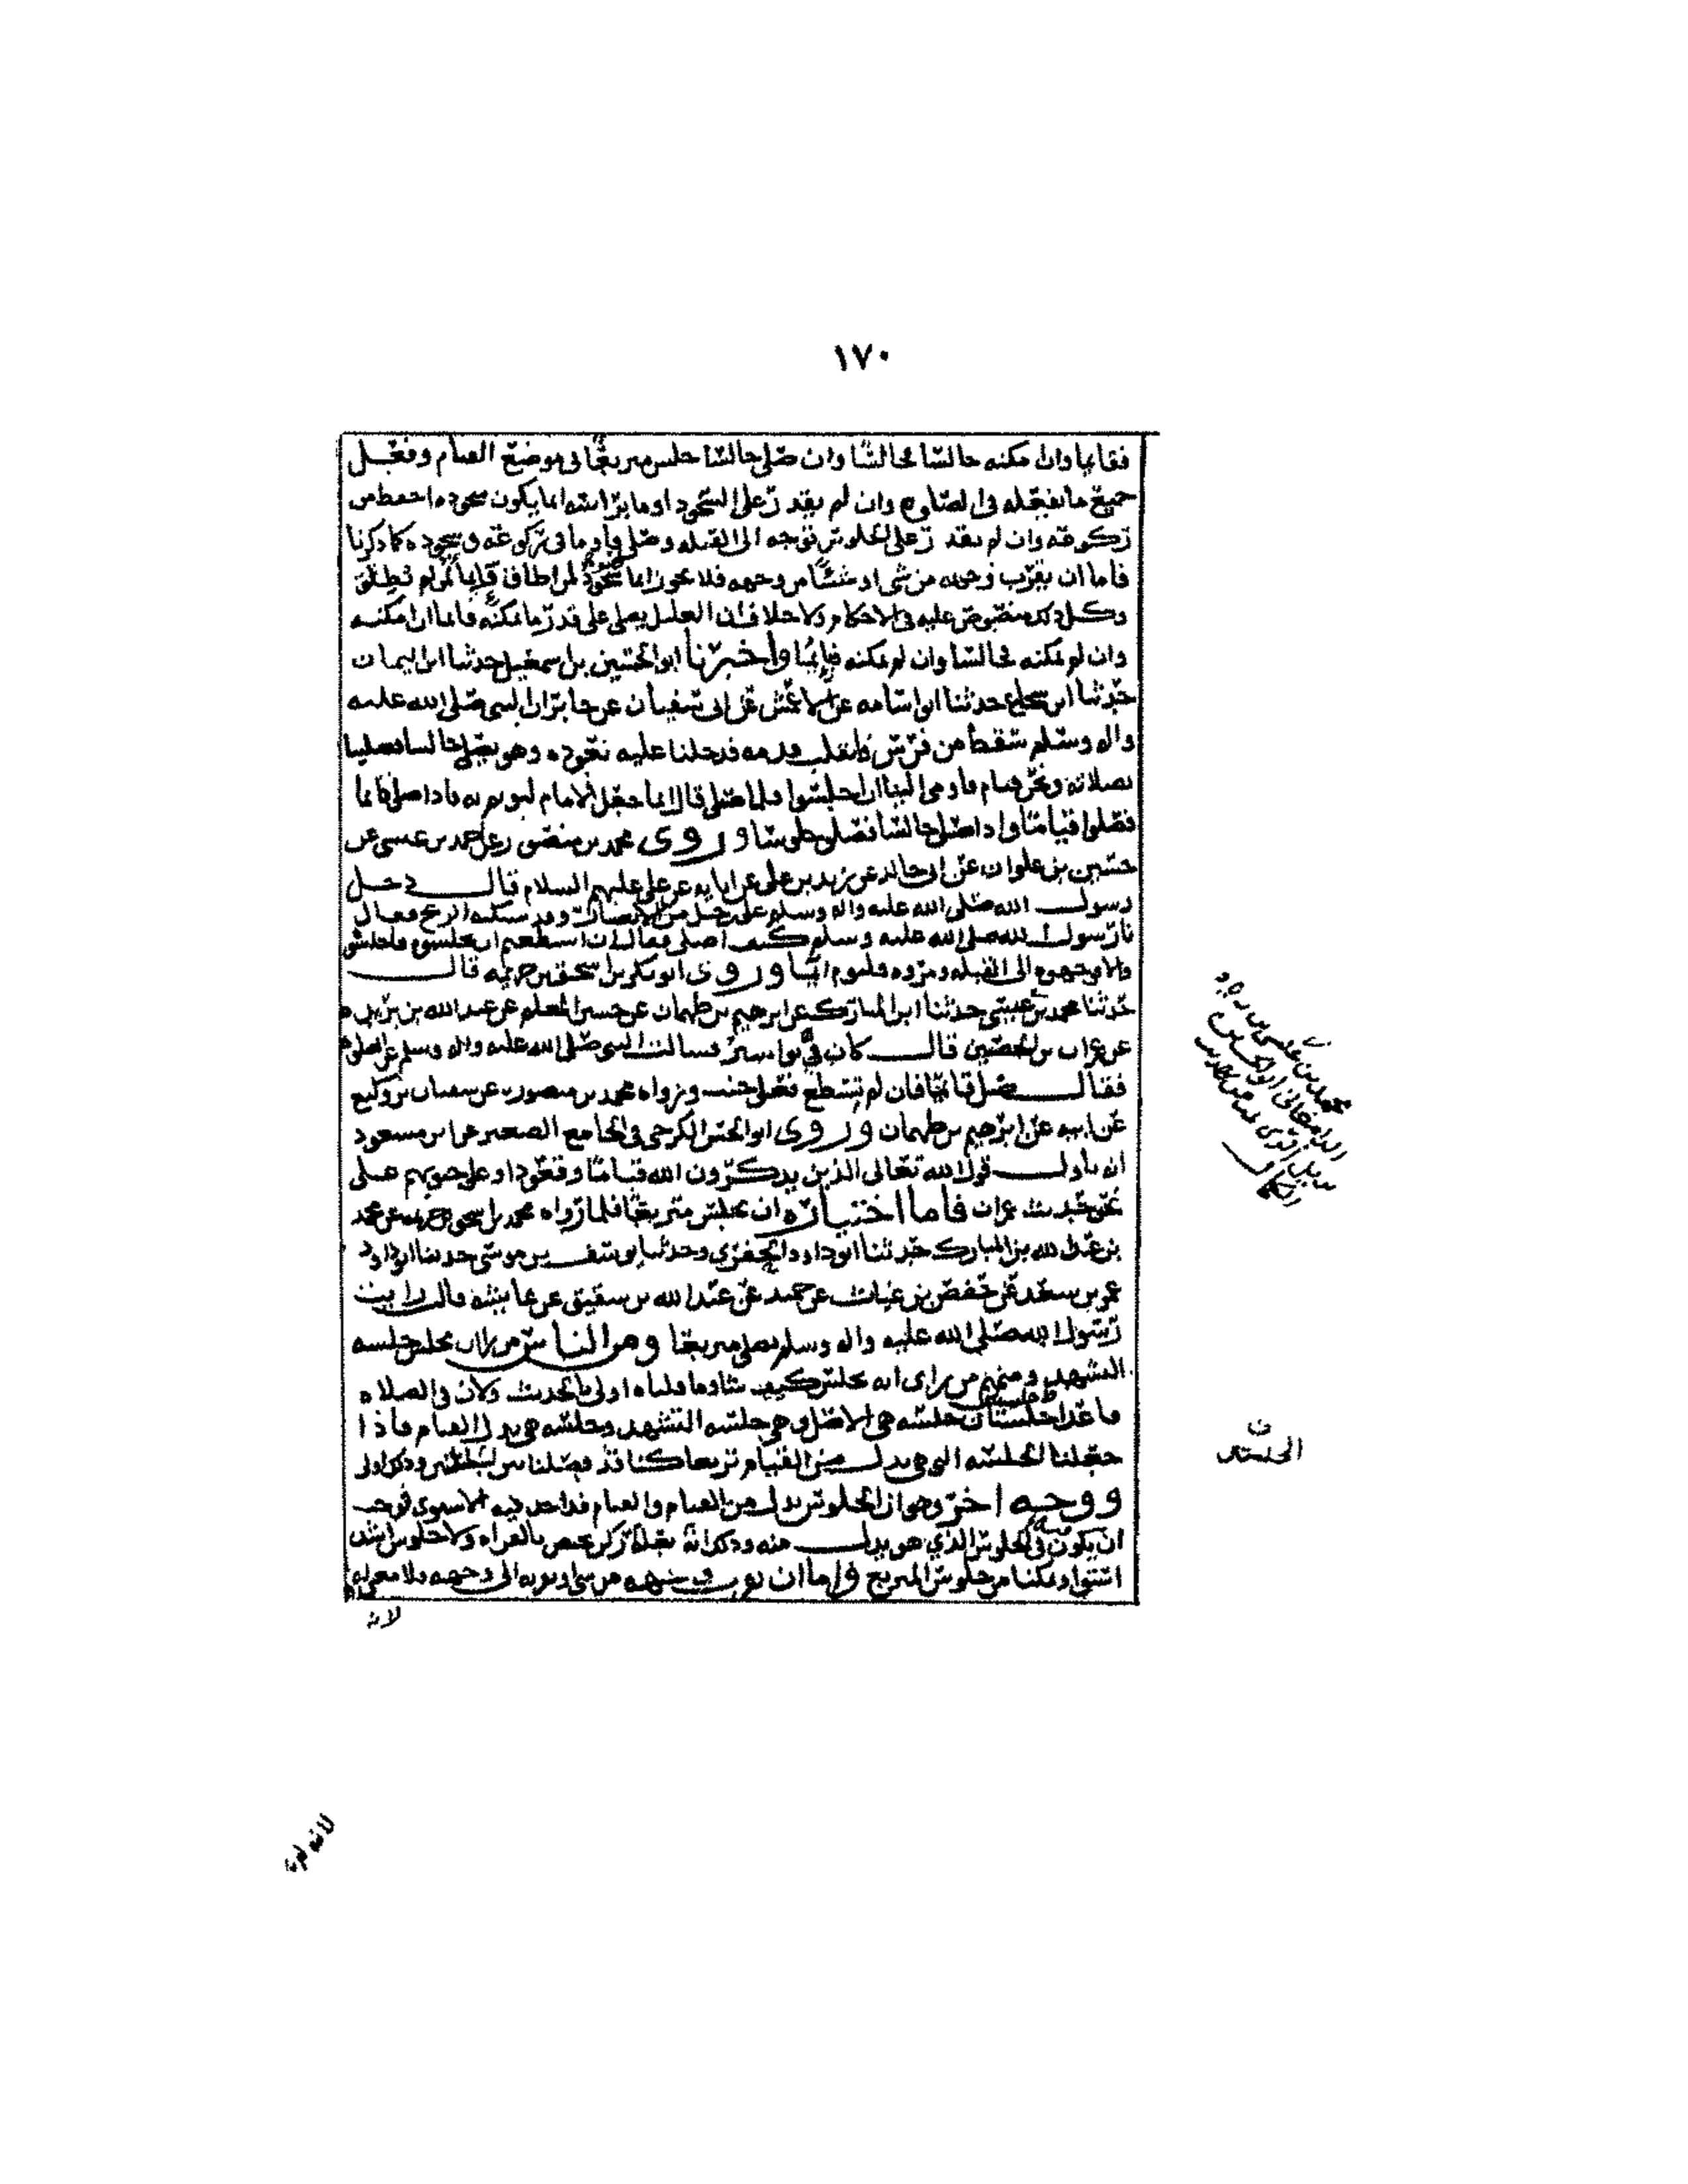 ١٧٠
فقائما وان امكنه جالسا فجالسا وان صلى جالسا جلس متربعا في موضع القيام وفعل
جميع ما يفعله في الصلوه وان لم يقدر على السجود اوما براسه ايما يكون سجوده اخفض من
ركوعه وان لم يقدر على الجلوس توجه الى القبله وصلى واوما في ركوعه وسجوده كما ذكرنا
فاما ان يقرب وجهه من شي او شيئا من وجهه فلا يجوز ايما
وكل ذلك منصوص عليه في الاحكام ولا خلاف ان العليل يصلي على قدر ما يمكنه قائما ان امكنه
وان لم يمكنه فجالسا وان لم يمكنه واخبرنا ابو الحسين بن اسمعيل حدثنا ابن اليمان
حدثنا ابن شجاع حدثنا ابو اسامه عن الاعمش عن ابي سفيان عن جابر ان النبي صلى الله عليه
واله وسلم سقط من فرس فانفك قدمه فدخلنا عليه نعوده وهو يصلي جالسا فصلينا
بصلاته ونحن قيام فاومى الينا ان اجلسوا فلما صلى قال انما جعل الامام ليوتم به فاذا صلى قائما
فصلوا قياما واذا صلى جالسا فصلوا جلوسا وروى محمد بن منصور عن احمد بن عيسى عن
حسين بن علوان عن ابي خالد عن زيد بن علي عن ابايه عن علي عليهم السلام قال دخل
رسول الله صلى الله عليه واله وسلم على رجل من الانصار وقد شبكته الريح فقال
يا رسول الله صلى الله عليه وسلم كيف اصلي فقال ان استطعتم ان تجلسوه فاجلسوه
والا وجهوه الى القبله ومروه فليوم ايما وروى ابو بكر بن اسحق بن خزيمه قال
حدثنا محمد بن عيسى حدثنا ابن المبارك عن ابرهيم بن طهمان عن حسين المعلم عن عبد الله بن بريده
عن عمران بن الحصين قال كان بي بواسير فسالت النبي صلى الله عليه واله وسلم عن الصلوه
فقال صل قائما فان لم تستطع فعلى جنب ورواه محمد بن منصور عن سفيان بن وكيع
عن ابيه عن ابرهيم بن طهمان وروى ابو الحسن الكرخي في الجامع الصغير عن ابن مسعود
انه تاول قول الله تعالى الذين يذكرون الله قياما وقعودا وعلى جنوبهم على
نحو حديث عمران فاما اختياره ان يجلس متربعا فلما رواه محمد بن اسحق بن خزيمه عن محمد
بن عبد الله بن المبارك حدثنا ابو داود الحفري وحدثنا يوسف بن موسى حدثنا ابو داود
عمر بن سعد عن حفص بن غياث عن حميد عن عبد الله بن شقيق عن عايشه قالت رايت
رسول الله صلى الله عليه واله وسلم يصلي متربعا ومن الناس من يراى يجلس جلسه
التشهد ومنهم من يراى انه يجلس كيف شا وما قلناه اولى بالحديث ولان في الصلاه
ما عدا جلستان جلسه هي الاصل وهي جلسه التشهد وجلسه هي بدل القيام فاذا
جعلنا الجلسه التي هي بدل من القيام تربعا كنا قد فصلنا بين الجلستين وذلك اولى
ووجه اخر وهو ان الجلوس بدل من القيام والقيام قد اخذ فيه الاستوى فوجب
ان يكون في الجلوس الذي هو بدل منه وذلك انه بقله ركن يختص بالقراه ولا جلوس اشد
استوا وتمكنا من جلوس المتربع واما ان وجهه من شي او يدنه الى وجهه فلا معنى له
لانه
محمد بن عيسى بن زياد
الدامغاني ابو الحسين
الجلستان
لانه لم